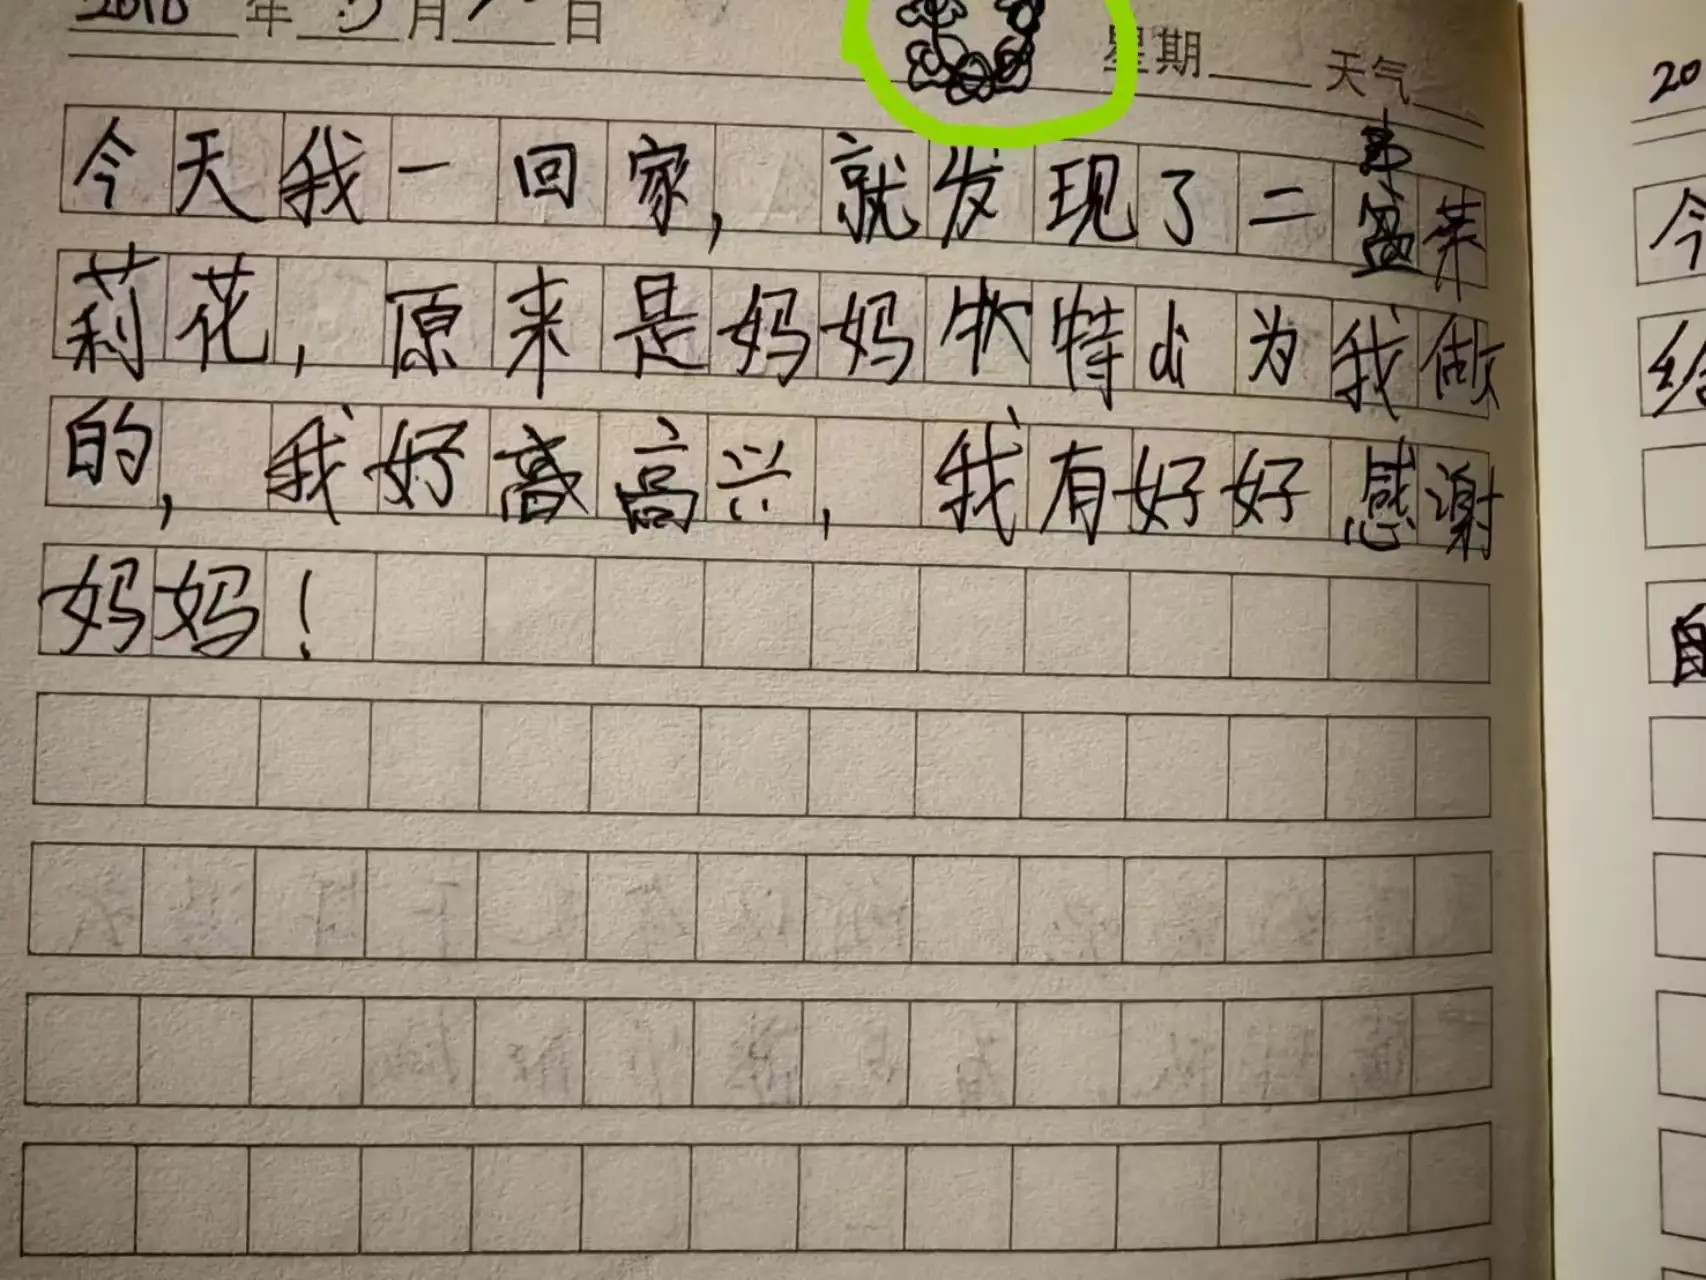 2018年3月 日 星期 天气
今天我一回家,就发现了二盆茉
莉花,原来是妈妈特di为我做
的,我好高高兴,我有好好感谢
妈妈!
20
今
给
自